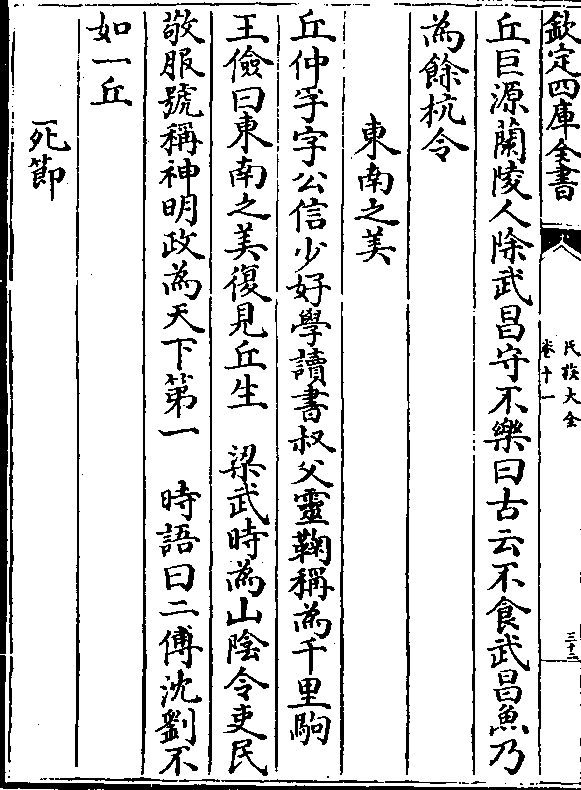 欽定四庫全書
氏族大全
卷十一
三十二
丘巨源蘭陵人除武昌守不樂曰古云不食武昌魚乃
為餘杭令
東南之美
丘仲孚字公信少好學讀書叔父靈鞠稱為千里駒
王儉曰東南之美復見丘生　梁武時為山陰令吏民
敬服號稱神明政為天下第一　時語曰二傅沈劉不
如一丘
死節